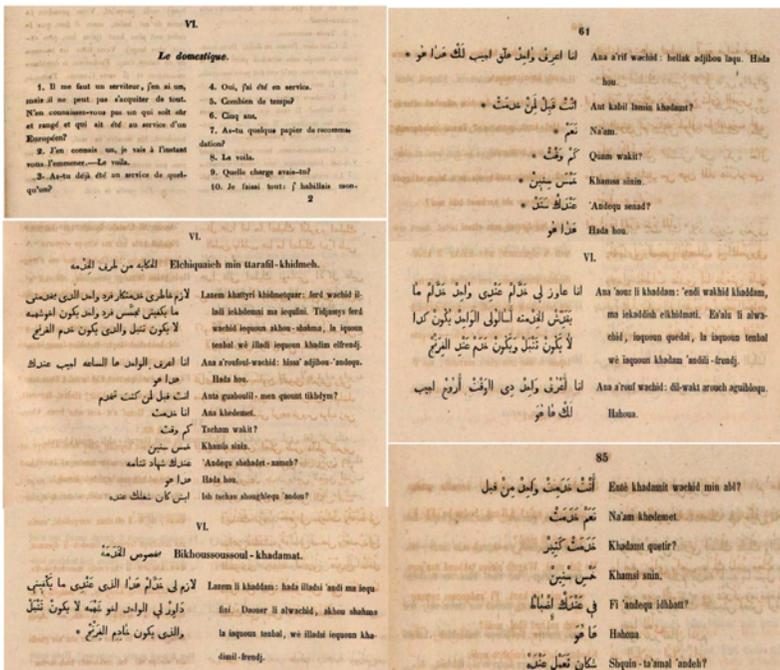 VI.
Le domestique.
1. Il me faut un serviteur, j'en ai un,
mais il ne peut pas s'acquiter de tout.
N'en connaissez-vous pas un qui soit sûr
et rangé et qui ait été au service d'un
Européen?
2. J'en connais un, je vais à l'instant
vous l'emmener.—Le voila.
3. As-tu déjà été au service de quel-
qu'un?
4. Oui, j'ai été en service.
5. Combien de temps?
6. Cinq ans.
7. As-tu quelque papier de recomman-
dation?
8. Le voila.
9. Quelle charge avais-tu?
10. Je faisai tout: j'habillais mon-
2
VI.
الحكايه من طرف الخدمه Elchiquaieh min ttarafil-khidmeh.
لازم خاطرى خدمتكار فرد واحد الذى يخدمنى Lazem khattyri khidmetquar: ferd wachid il-
ladi iekhdemni ma iequfini. Tidjasys ferd
wachid iequoun akhou-shahma, la iquoun
tenbal wè illadi iequoun khadim elfrendj.
انا اعرف الواحد هسا اجيب عندك Ana a'roufoul-wachid: hissa' adjibou-'andequ.
هدا هو Hada hou.
انت قبل لمن كنت تخدم Anta guaboulil-men quount tikhdym?
انا خدمت Ana khedemet.
كم وقت Tscham wakit?
خمس سنين Khamis sinin.
عندك شهادتنامه 'Andequ shehadet-nameh?
هدا هو Hada hou.
ايش كان شغلك عنده Ish tschan shoughlequ 'andou?
VI.
بخصوص الخدمة Bikhoussoussoul-khadamat.
لازم لى خدام هدا الذى عندى ما يكفينى Lazem li khaddam: hada illadsi 'andi ma iequ
fini. Daouer li alwachid, akhou shahma
la iaquoun tenbal, wè illadsi iequoun kha-
dimil-frendj.
61
انا اعرف واحد هلق اجيب لك هدا هو * Ana a'rif wachid: hellak adjibou laqu. Hada
hou.
انت قبل لمن خدمت * Ant kabil lamin khadamt?
نعم * Na'am.
كم وقت * Quam wakit?
خمس سنين * Khamsa sinin.
عندك سند * 'Andequ senad?
هدا هو Hada hou.
VI.
انا عاوز لى خدام عندى واحد خدام ما Ana 'aouz li khaddam: 'endi wakhid khaddam,
ma iekaddish elkhidmati. Es'alu li alwa-
chid, iaquoun quedsi, la iequoun tenbal
wè iaquoun khadam 'andili-frendj.
Ana a'rouf wachid: dil-wakt arouch aguiblequ.
لك ها هو Hahoua.
85
انت خدمت واحد من قبل Entè khadamit wachid min abl?
نعم خدمت Na'am khedemet.
خدمت كتير Khadamt quetir?
خمس سنين Khamsi snin.
في عندك اضباط Fi 'andequ idhbatt?
ها هو Hahoua.